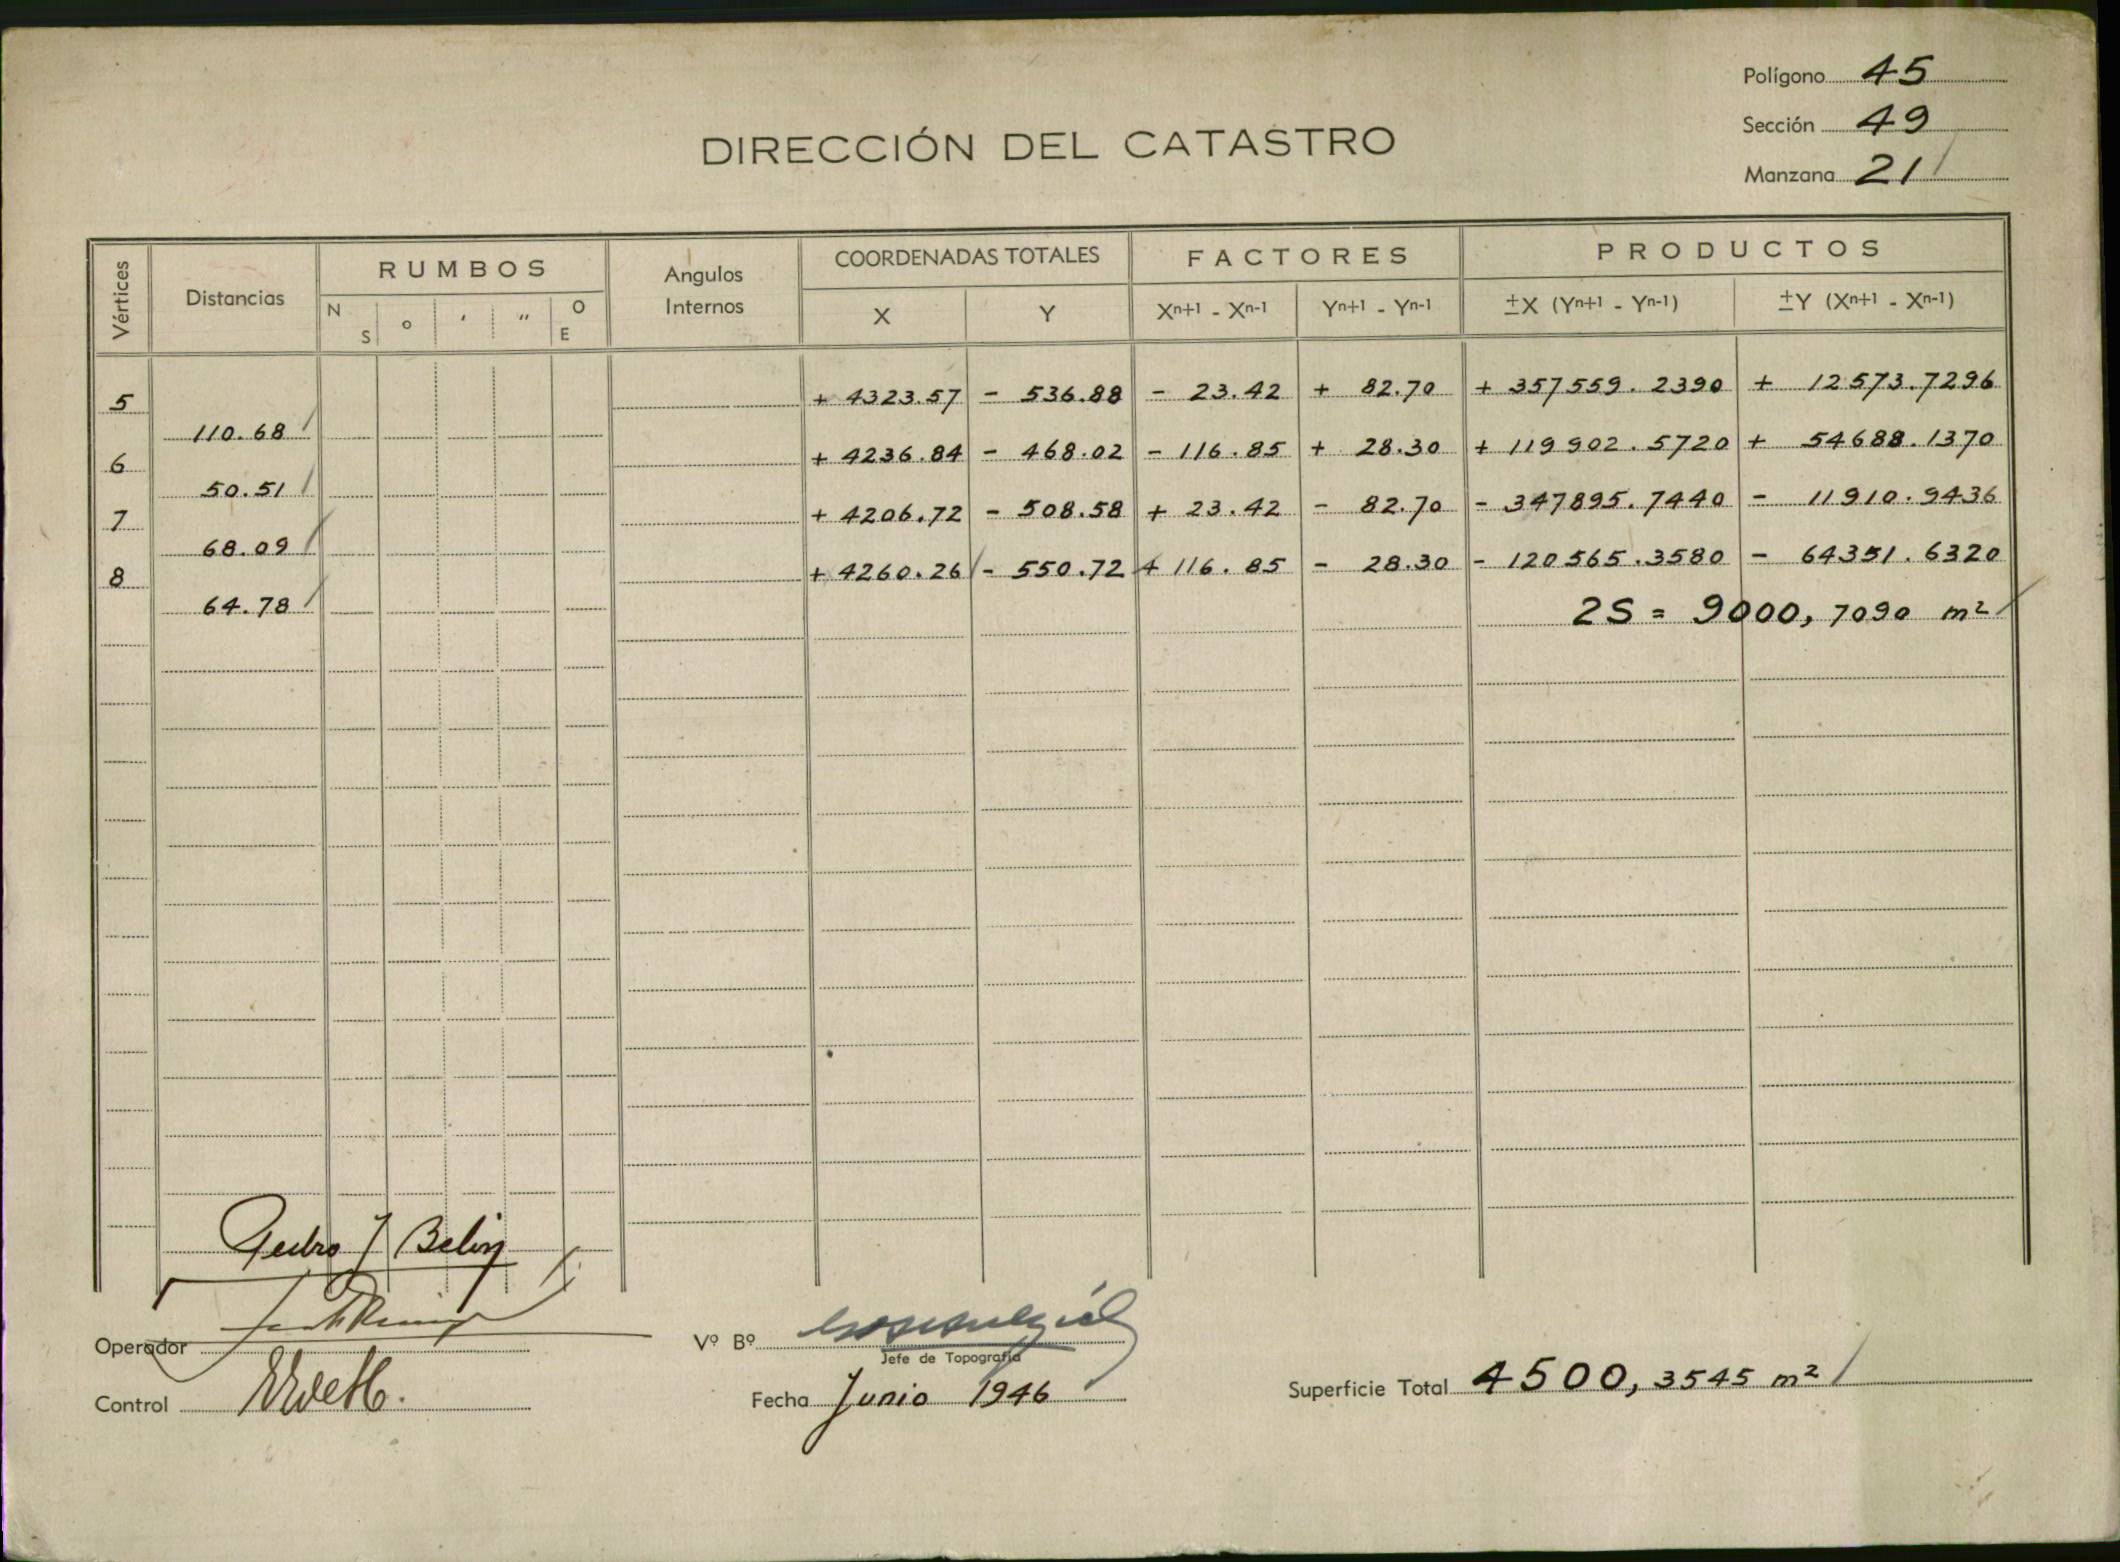 Polígono 45
Sección 49
Manzana 21
DIRECCIÓN DEL CATASTRO
Vértices Distancias RUMBOS Angulos Internos COORDENADAS TOTALES FACTORES PRODUCTOS
N S ° ' " O E X Y Xn+1 - Xn-1 Yn+1 - Yn-1 ±X (Yn+1 - Yn-1) ±Y (Xn+1 - Xn-1)
5 + 4323.57 - 536.88 - 23.42 + 82.70 + 357559.2390 + 12573.7296
110.68
6 + 4236.84 - 468.02 - 116.85 + 28.30 + 119902.5720 + 54688.1370
50.51
7 + 4206.72 - 508.58 + 23.42 - 82.70 - 347895.7440 - 11910.9436
68.09
8 + 4260.26 - 550.72 + 116.85 - 28.30 - 120565.3580 - 64351.6320
64.78
2S = 9000,7090 m²
Pedro J Belin
Operador
Vº Bº
Jefe de Topografía
Control
Fecha Junio 1946
Superficie Total 4500,3545 m²